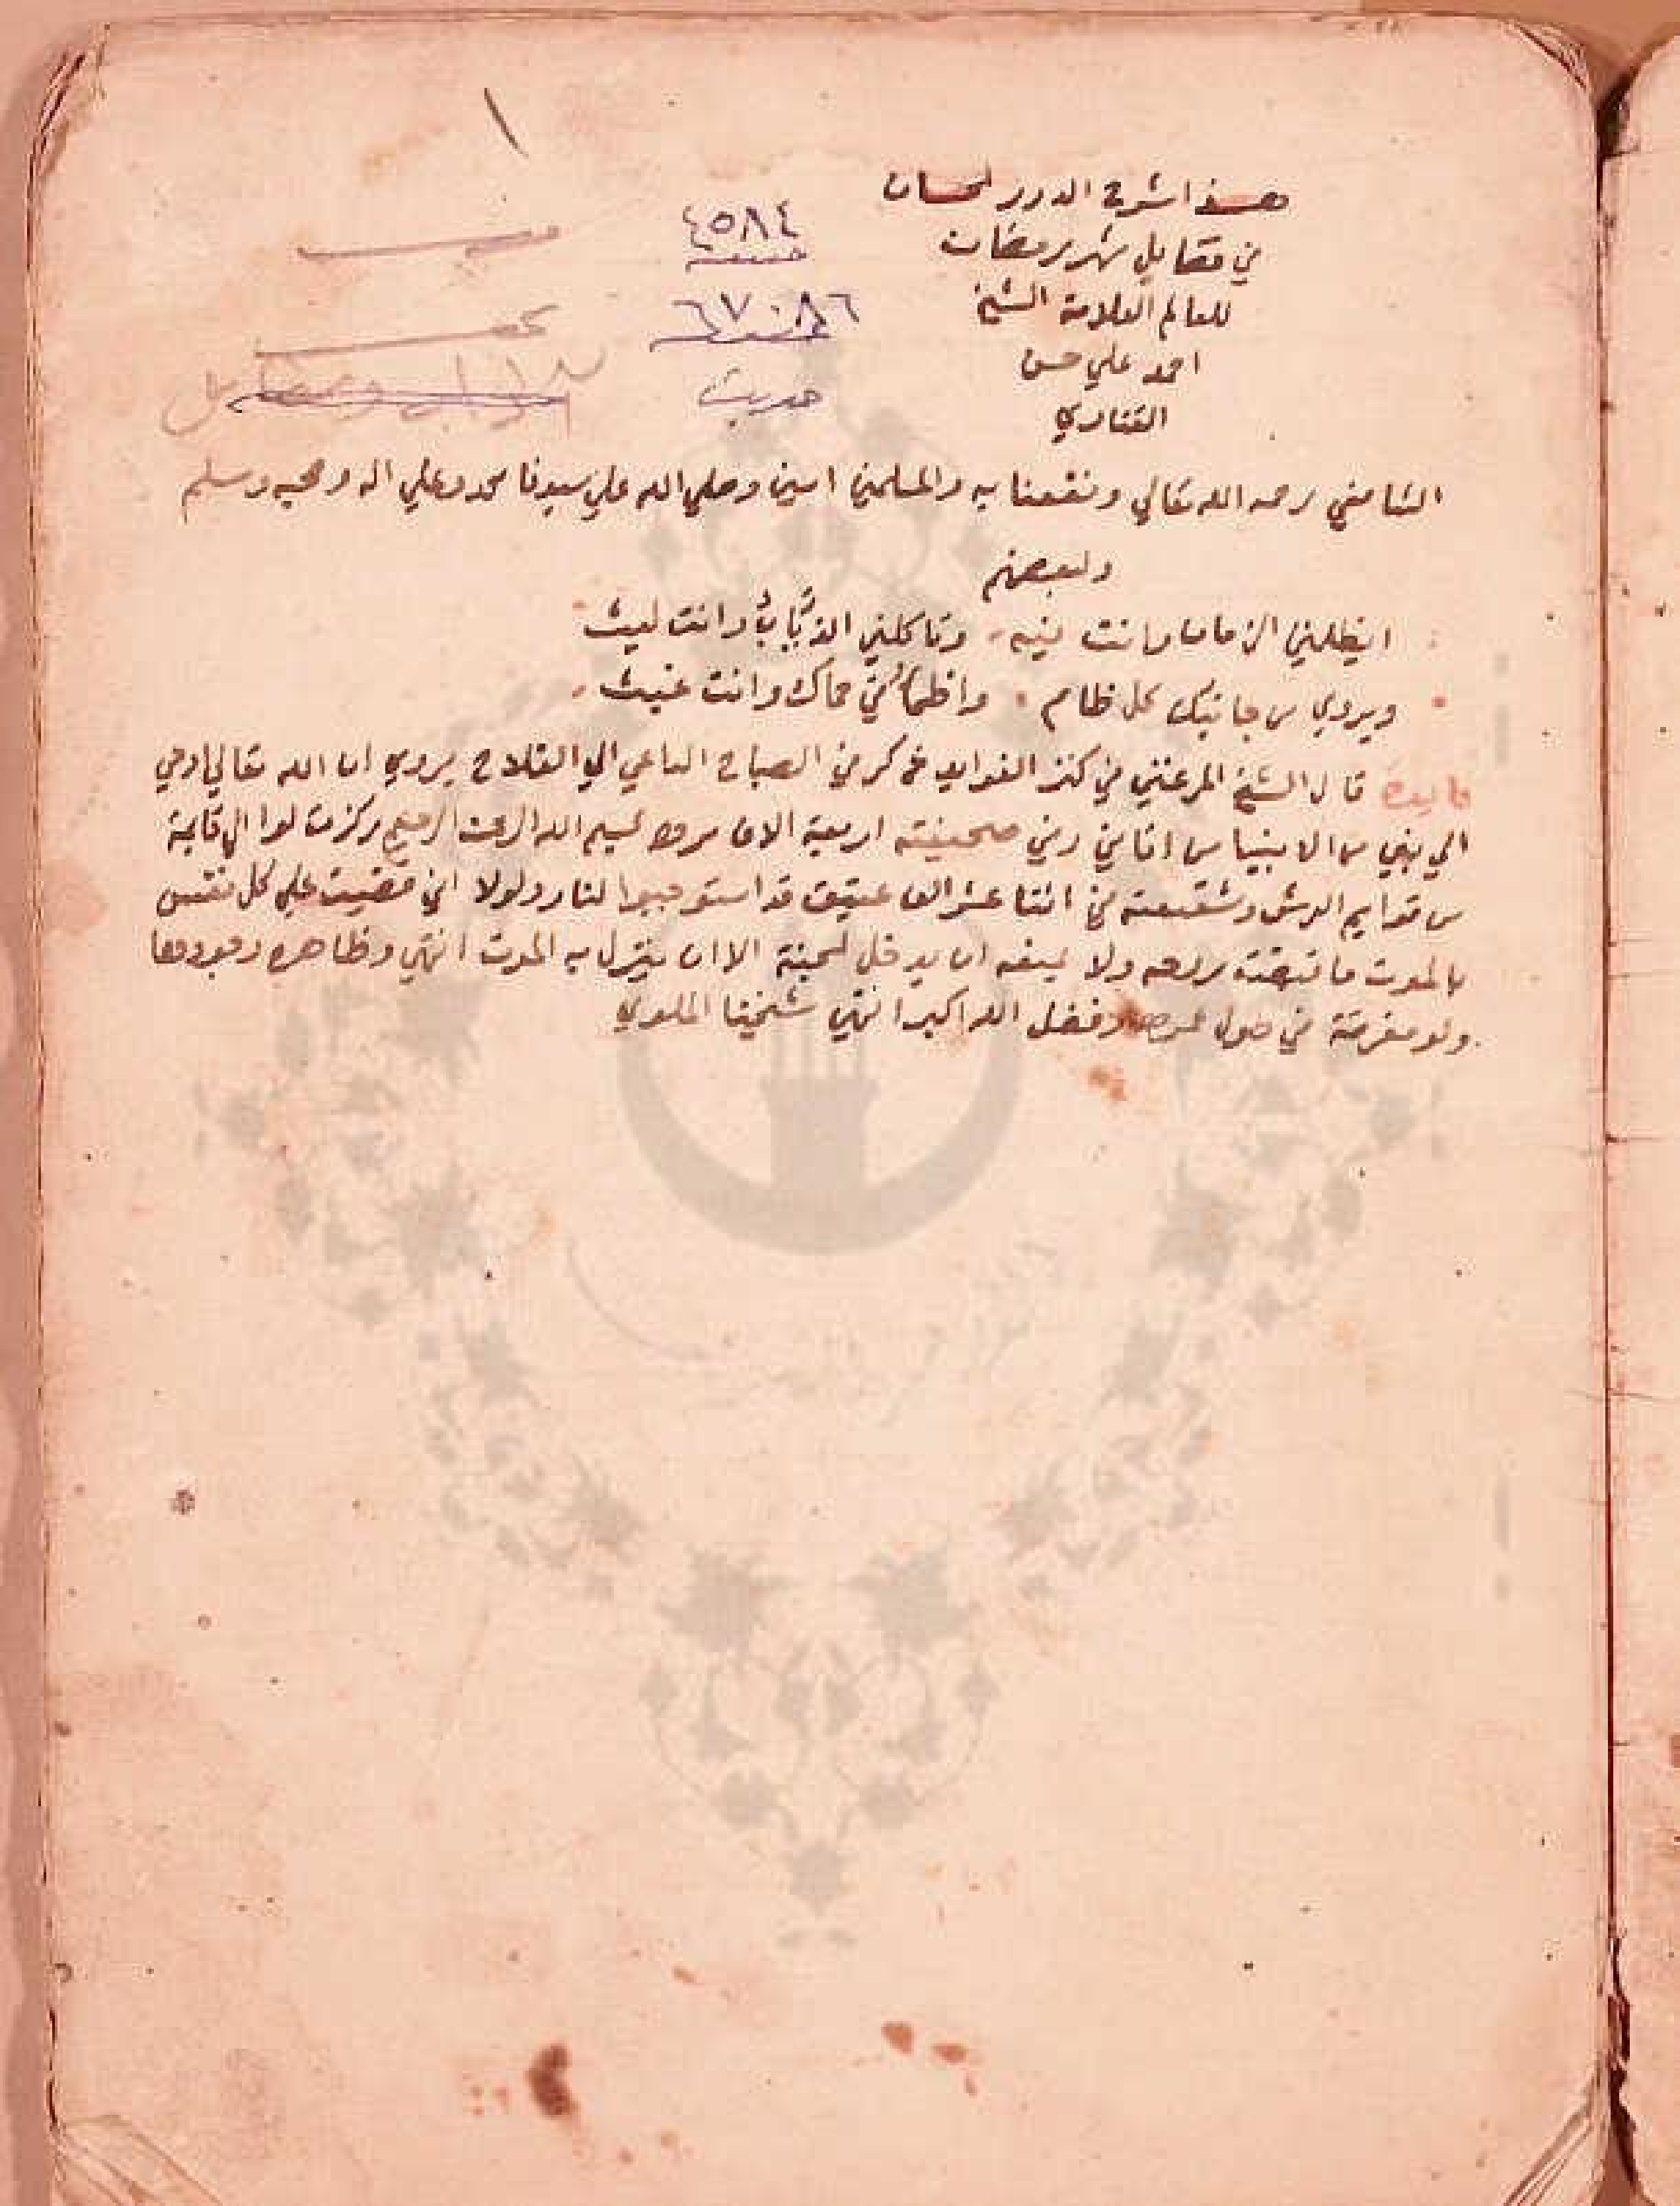 ١
هذا شرح الدرر الحسان
في فضايل شهر رمضان
للعالم العلامة الشيخ
احمد علي حسن
٤٥٨٤
٦٧٠٨٦
حديث
الشافعي رحمه الله تعالي ونفعنا به والمسلمين امين وصلي الله علي سيدنا محمد وعلي اله وصحبه وسلم
ولبعضهم
ايظلمني الزمان وانت فيه وتاكلني الذئاب وانت ليث
ويروي من جانبك كل ظام واظما في حماك وانت غيث
فايدة قال الشيخ في كنز الفوايد الصباح الداعي الي الفلاح يروي ان الله تعالي اوحي
الي نبي من الانبيا من اتاني وفي صحيفته اربعة الاف مرة بسم الله الرحمن الرحيم ركزت لوا الي قايمة
من قوايم العرش وشفعته في اثنا عشر الف عتيق قد استوجبوا النار ولولا اني قضيت علي كل نفس
بالموت ما قبضت روحه ولا يمنعه ان يدخل الجنة الا ان ينزل به الموت انتهي وظاهره وجودها
ولو مفرقة في طول عمره وفضل الله اكبر انتهي شيخنا الملوي